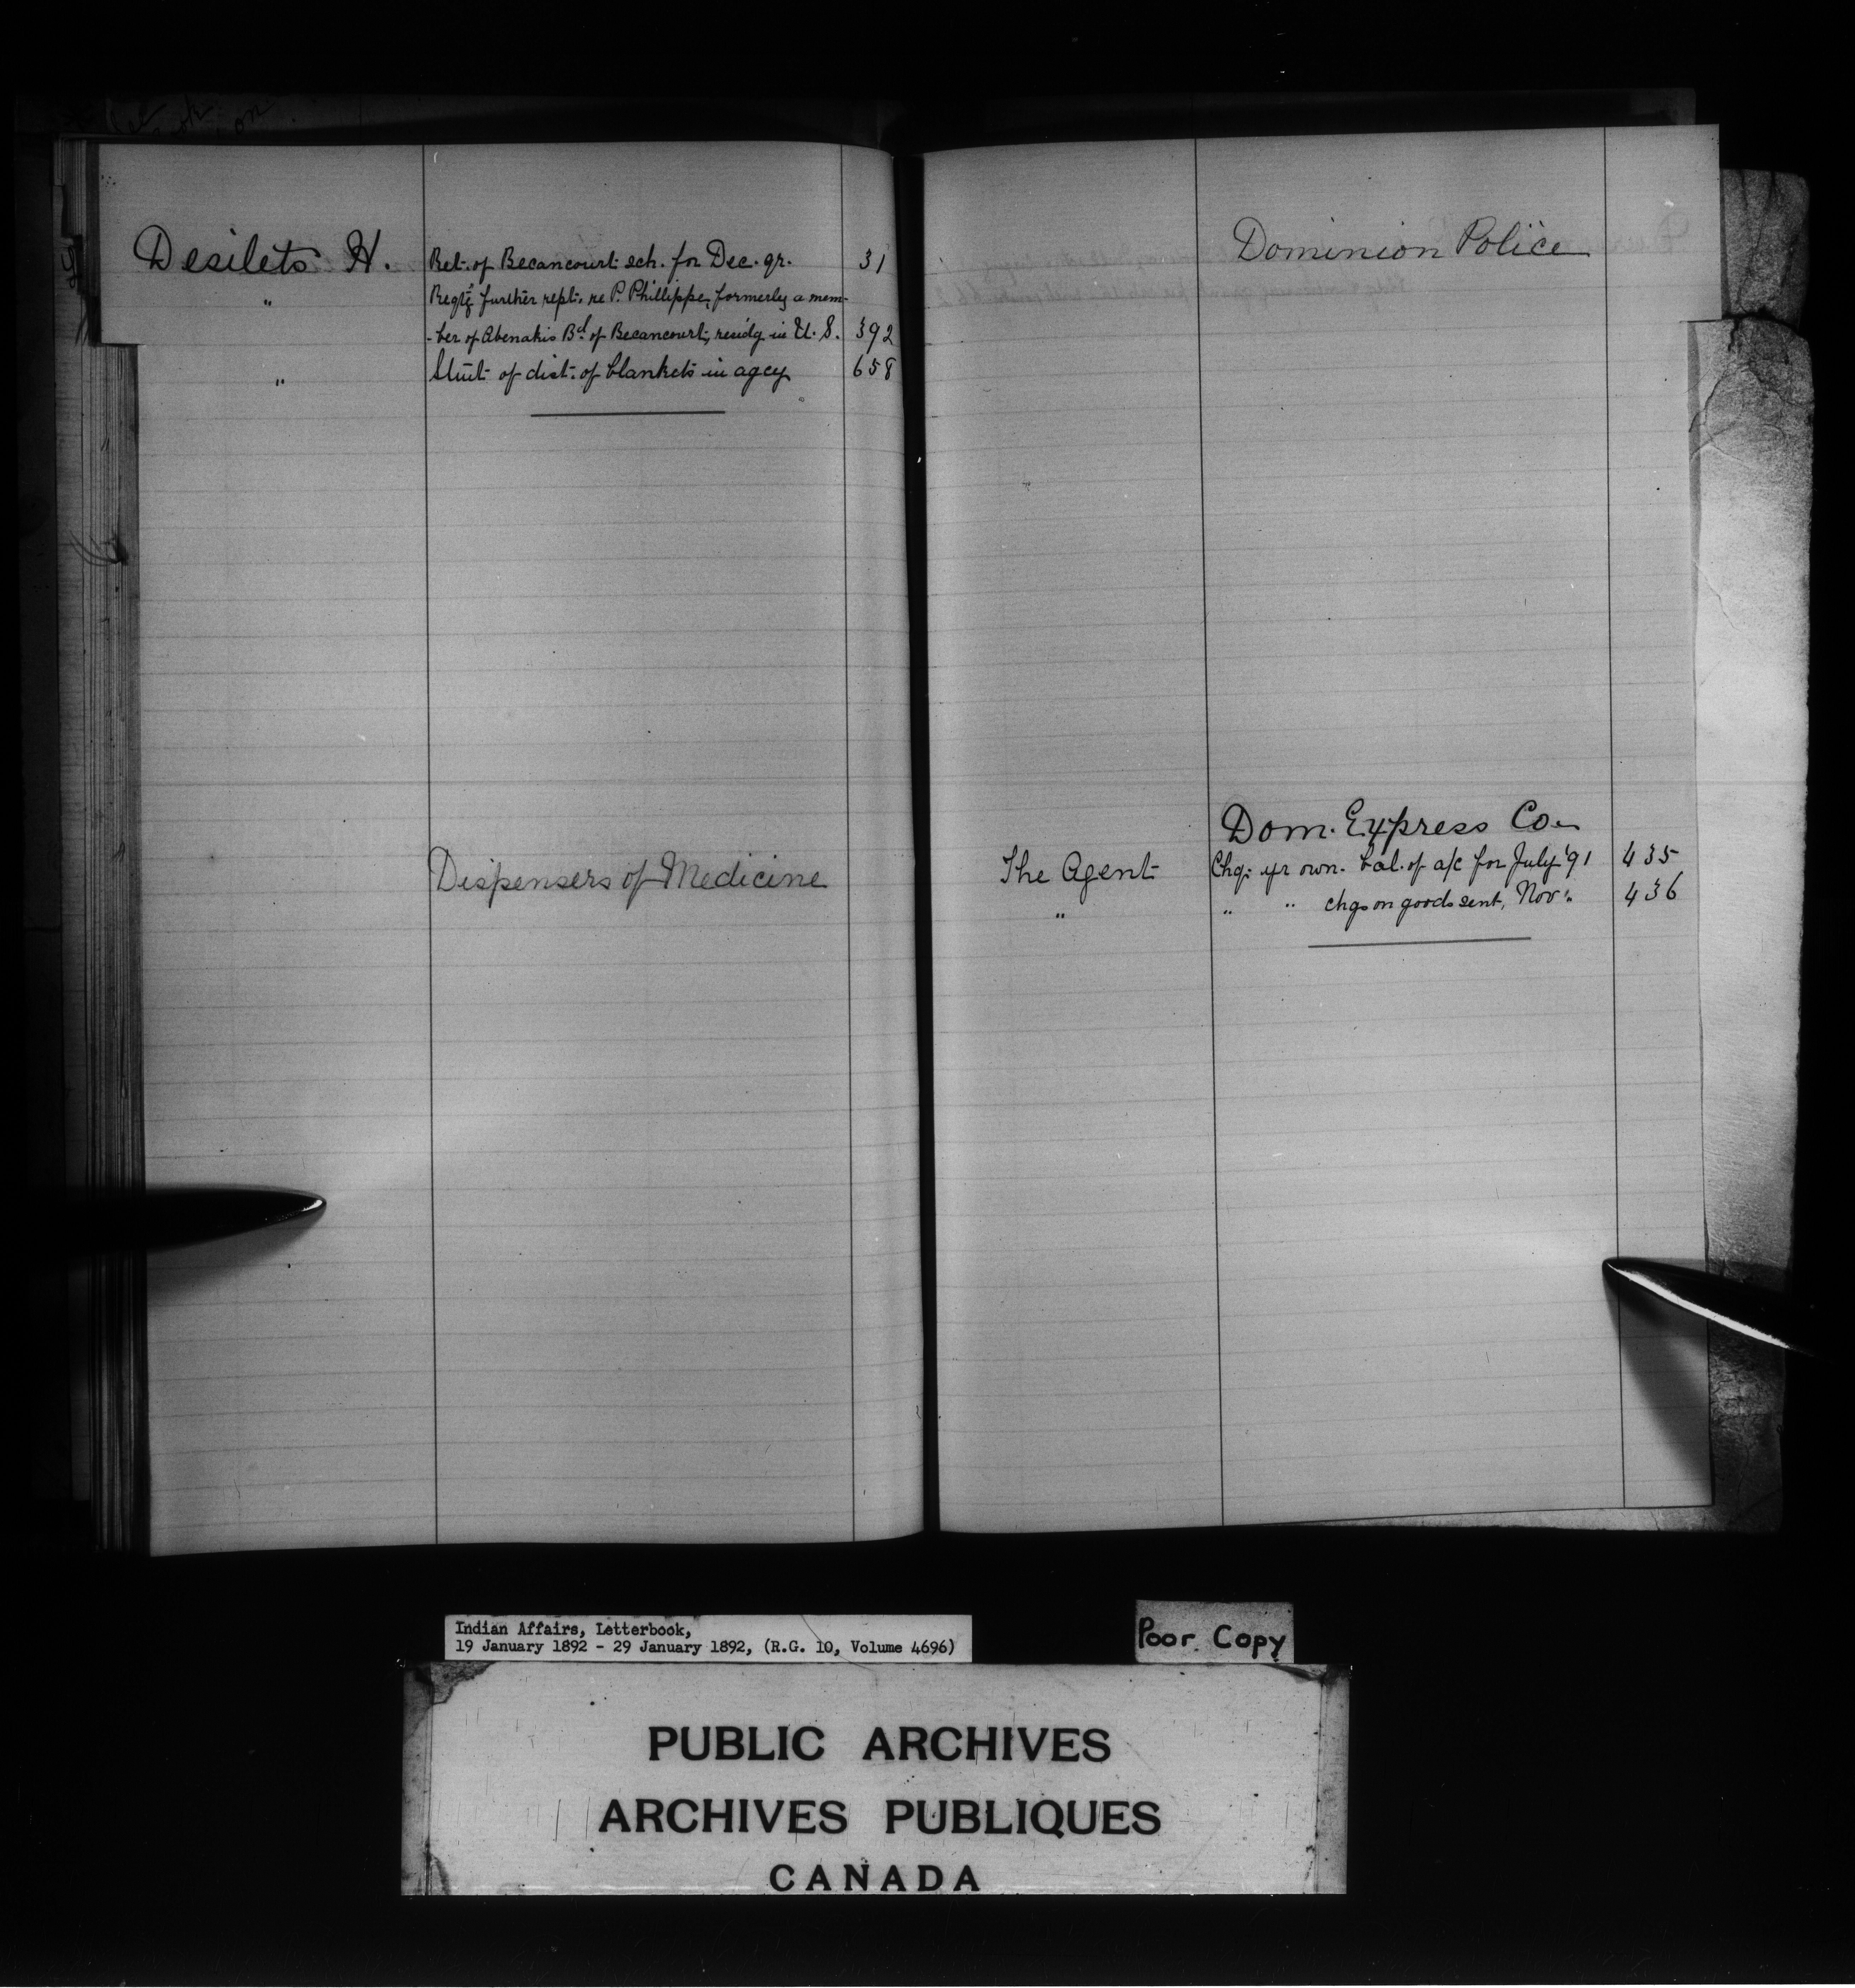 Desilets H. Ret. of Becancourt sch. for Dec. qr. 31
" Reqtg further rept. re P. Phillippe, formerly a mem-
-ber of Abenakis Bd. of Becancourt, residg in U. S. 392
" Stmt of dist. of blankets in agcy 658
Dispensers of Medicine
Dominion Police
Dom. Express Co.
The Agent Chq. yr own. bal. of a/c for July '91 435
" " " chgs on goods sent, Nov " 436
Indian Affairs, Letterbook,
19 January 1892 - 29 January 1892, (R.G. 10, Volume 4696)
Poor Copy
PUBLIC ARCHIVES
ARCHIVES PUBLIQUES
CANADA